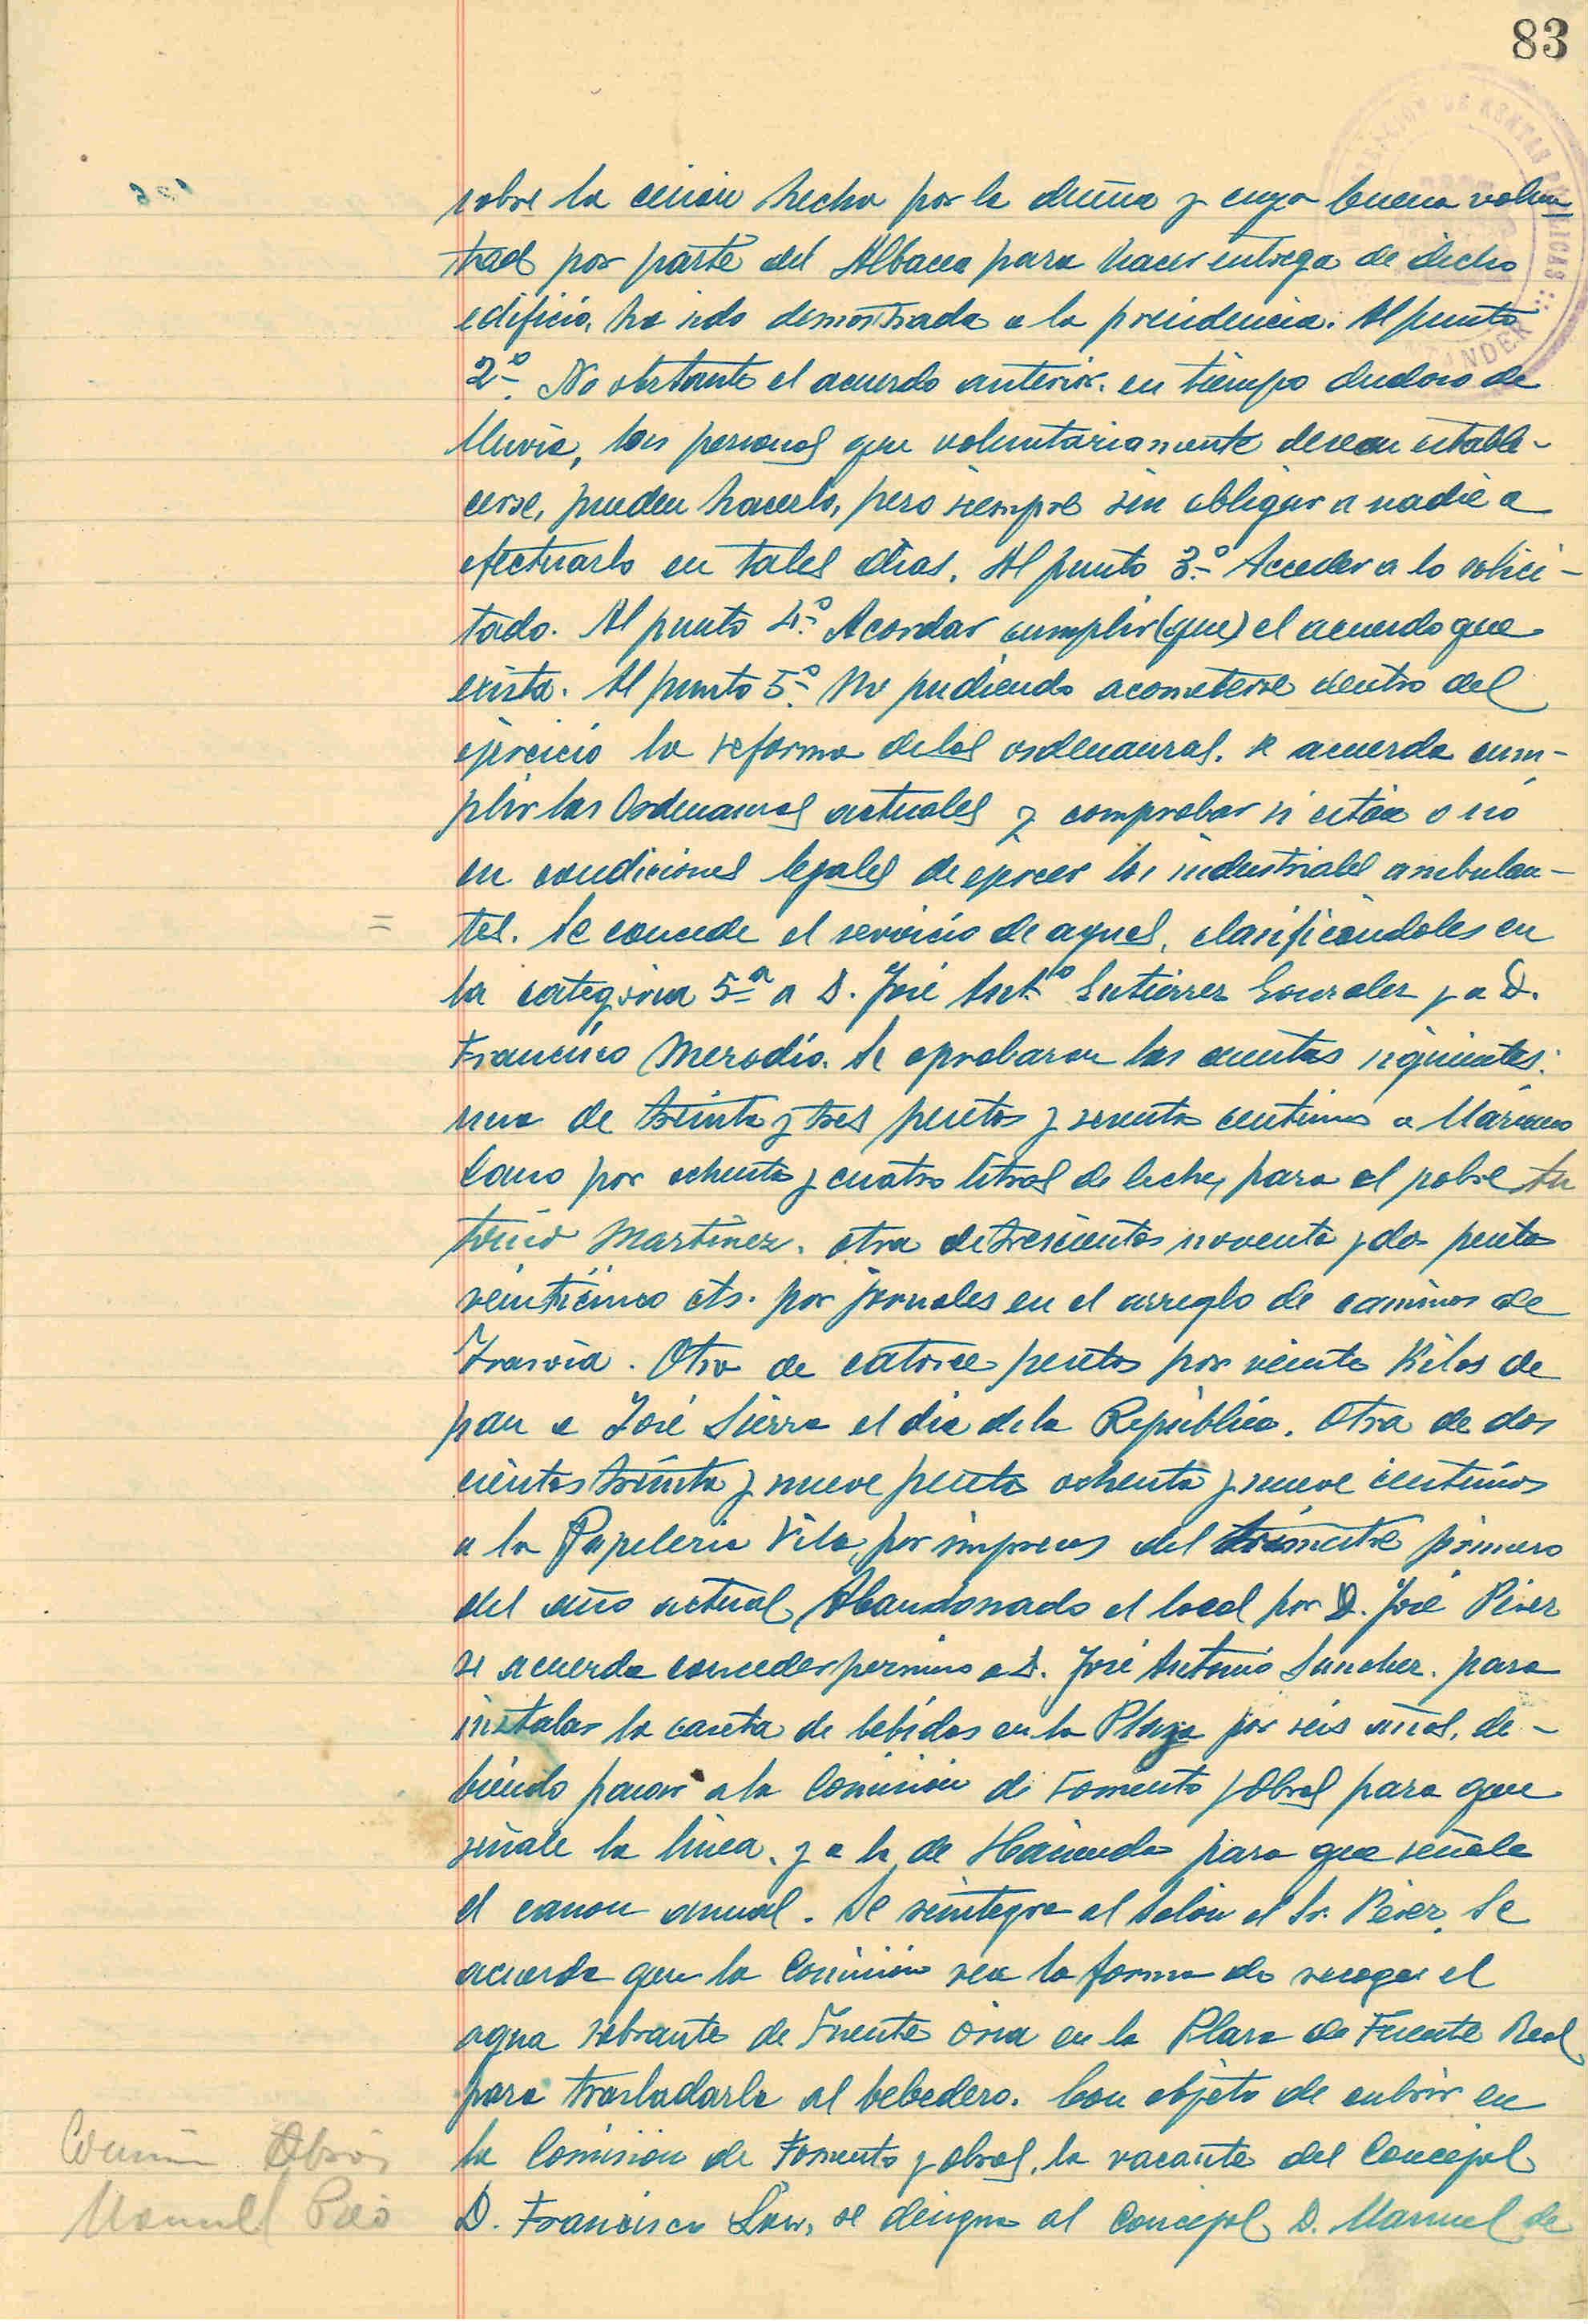 83
sobre la cesión hecha por la dueña y cuya buena volun
tad por parte del Albacea para hacer entrega de dicho
edificio, ha sido demostrada a la presidencia. Al punto
2º. No obstante el acuerdo anterior. en tiempo dudoso de
lluvia, las personas que voluntariamente deseen estable-
cerse, pueden hacerlo, pero siempre sin obligar a nadie a
efectuarlo en tales días. Al punto 3.º Acceder a lo solici-
tado. Al punto 4.º Acordar cumplir (que) el acuerdo que
exista. Al punto 5.º No pudiendo acometerse dentro del
ejercicio la reforma de las ordenanzas. se acuerda cum-
plir las Ordenanzas actuales y comprobar si están o no
en condiciones legales de ejercer los industriales ambulan-
= tes. Se concede el servicio de aguas, clasificándoles en
la categoría 5ª a D. José Antº Gutiérrez González y a D.
Francisco Merodio. Se aprobaron las cuentas siguientes:
una de treinta y tres pesetas y sesenta centimos a Mariano
Cano por ochenta y cuatro litros de leche, para el pobre An
tonio Martínez. otra de trescientas noventa y dos pesetas
veinticinco cts. por jornales en el arreglo de caminos de
Trasvia. Otra de catorce pesetas por veinte Kilos de
pan a José Sierra el día de la República. Otra de dos
cientas treinta y nueve pesetas ochenta y nueve centimos
a la Papeleria Vila, por impresos del trimestre primero
del año actual. Abandonado el local por D. José Pérez
se acuerda conceder permiso a D. José Antonio Sanchez. para
instalar la caseta de bebidas en la Plaza por seis años. de-
biendo pasar a la Comision de Fomento y Obras para que
señale la línea. y a la de Hacienda para que señale
el canon anual. Se reintegra al Salón el Sr. Pérez. Se
acuerda que la Comisión vea la forma de recoger el
agua sobrante de Fuente oria en la Plaza de Fuente Real
para trasladarla al bebedero. Con objeto de cubrir en
la Comision de Fomento y obras, la vacante del Concejal
D. Francisco se designa al Concejal D. Manuel de
Comisión Obras
Manuel